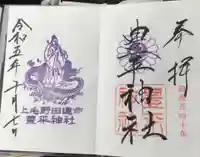 奉拝
豊平神社
令和五年十月七日
上毛野田道命
豊平神社